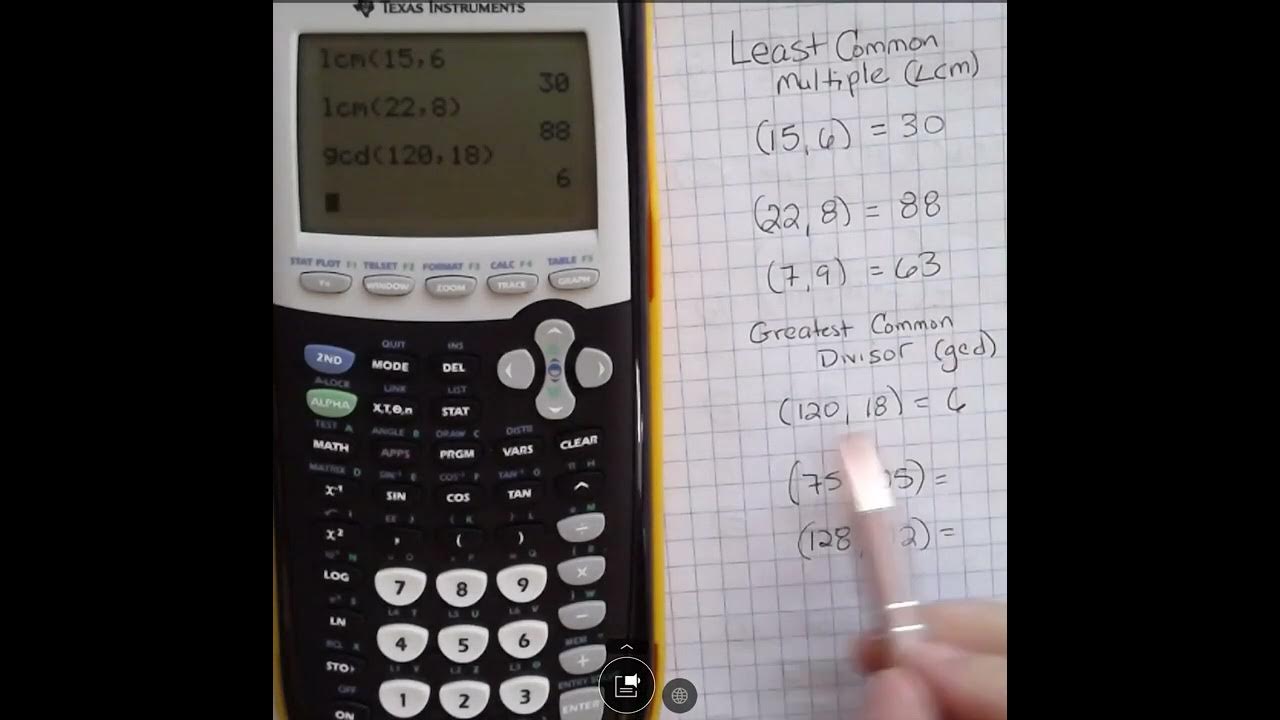 TEXAS INSTRUMENTS
lcm(15,6
30
lcm(22,8)
88
gcd(120,18)
6
STAT PLOT F1 TBLSET F2 FORMAT F3 CALC F4 TABLE F5
Y= WINDOW ZOOM TRACE GRAPH
QUIT INS
2ND MODE DEL
A-LOCK LINK LIST
ALPHA X,T,Θ,n STAT
TEST A ANGLE B DRAW C DISTR
MATH APPS PRGM VARS CLEAR
MATRIX D SIN⁻¹ E COS⁻¹ F TAN⁻¹ G H
x⁻¹ SIN COS TAN ^
x² , ( ) ÷
LOG 7 8 9 ×
L4 T L5 U L6 V W
LN 4 5 6 −
RCL X L1 Y L2 Z L3 MEM
STO▸ 1 2 3 +
OFF
ON ENTER
Least Common
Multiple (Lcm)
(15,6) = 30
(22,8) = 88
(7,9) = 63
Greatest Common
Divisor (gcd)
(120, 18) = 6
(75 5) =
(128, 2) =